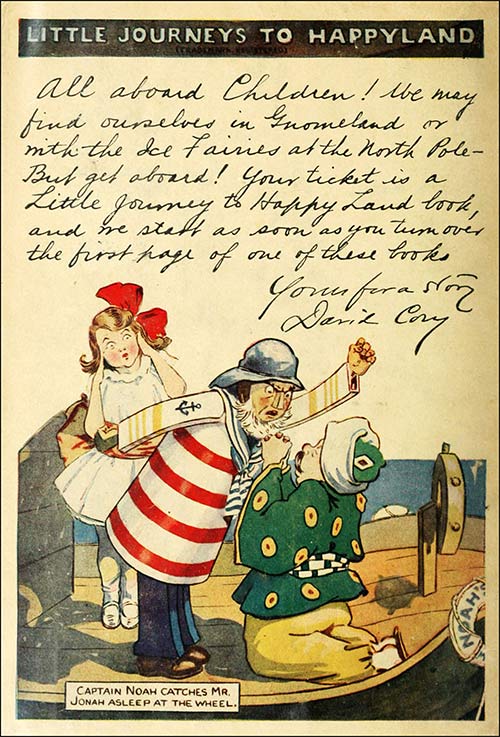 LITTLE JOURNEYS TO HAPPYLAND
(TRADEMARK REGISTERED)
All aboard Children! We may
find ourselves in Gnomeland or
with the Ice Fairies at the North Pole-
But get aboard! Your ticket is a
Little Journey to Happy Land book,
and we start as soon as you turn over
the first page of one of these books
Yours for a story
David Cory
NOAH'S
CAPTAIN NOAH CATCHES MR.
JONAH ASLEEP AT THE WHEEL.